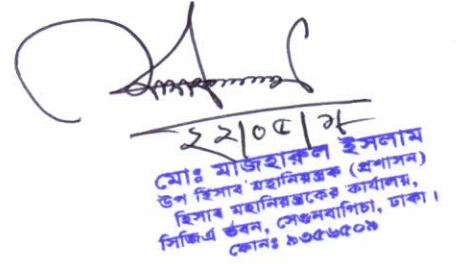 ২২|০৫|১৮
মোঃ মাজহারুল ইসলাম
উপ হিসাব মহানিয়ন্ত্রক (প্রশাসন)
হিসাব মহানিয়ন্ত্রকের কার্যালয়,
সিজিএ ভবন, সেগুনবাগিচা, ঢাকা।
ফোনঃ ৯৩৫৬৫০৯